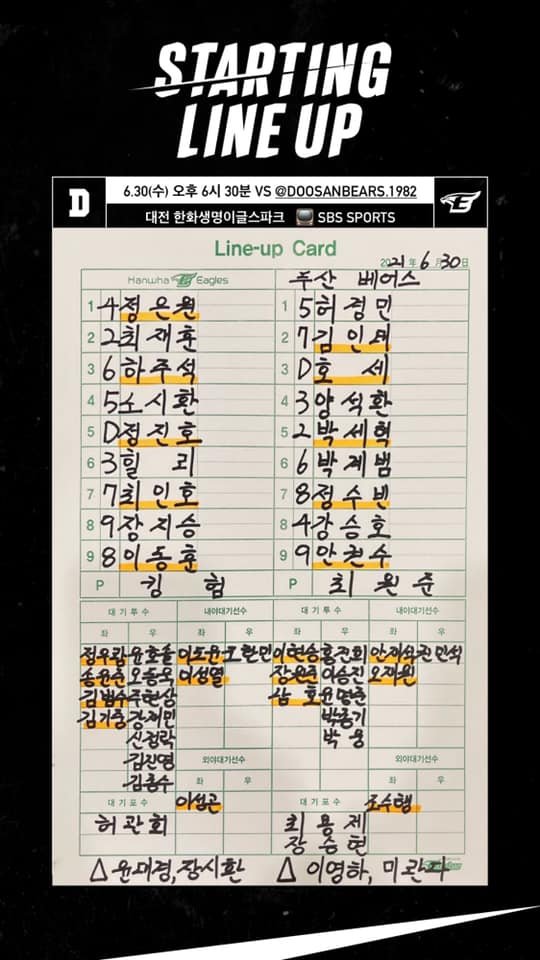 STARTING
LINE UP
D
6.30(수) 오후 6시 30분 VS @DOOSANBEARS.1982
대전 한화생명이글스파크 SBS SPORTS
Line-up Card
2021년 6월 30일
Hanwha Eagles 두산 베어스
1 4 정은원 1 5 허경민
2 2 최재훈 2 7 김인태
3 6 하주석 3 D 호세
4 5 노시환 4 3 양석환
5 D 정진호 5 2 박세혁
6 3 힐리 6 6 박계범
7 7 최인호 7 8 정수빈
8 9 장지승 8 4 강승호
9 8 이동훈 9 9 안권수
P 킹험 P 최원준
대기투수 내야대기선수 대기투수 내야대기선수
좌 우 좌 우 좌 우 좌 우
정우람 윤호솔 이도윤 조한민 이현승 홍건희 안재석 권민석
송윤준 오동욱 이성열 장원준 이승진 오재원
김범수 주현상 남호 윤명준
김기중 강재민 박종기
신정락 박웅
김진영 외야대기선수 외야대기선수
김종수 좌 우 좌 우
대기포수 이성곤 대기포수 조수행
허관회 최용제
장승현
△ 윤대경, 장시환 △ 이영하, 미란다